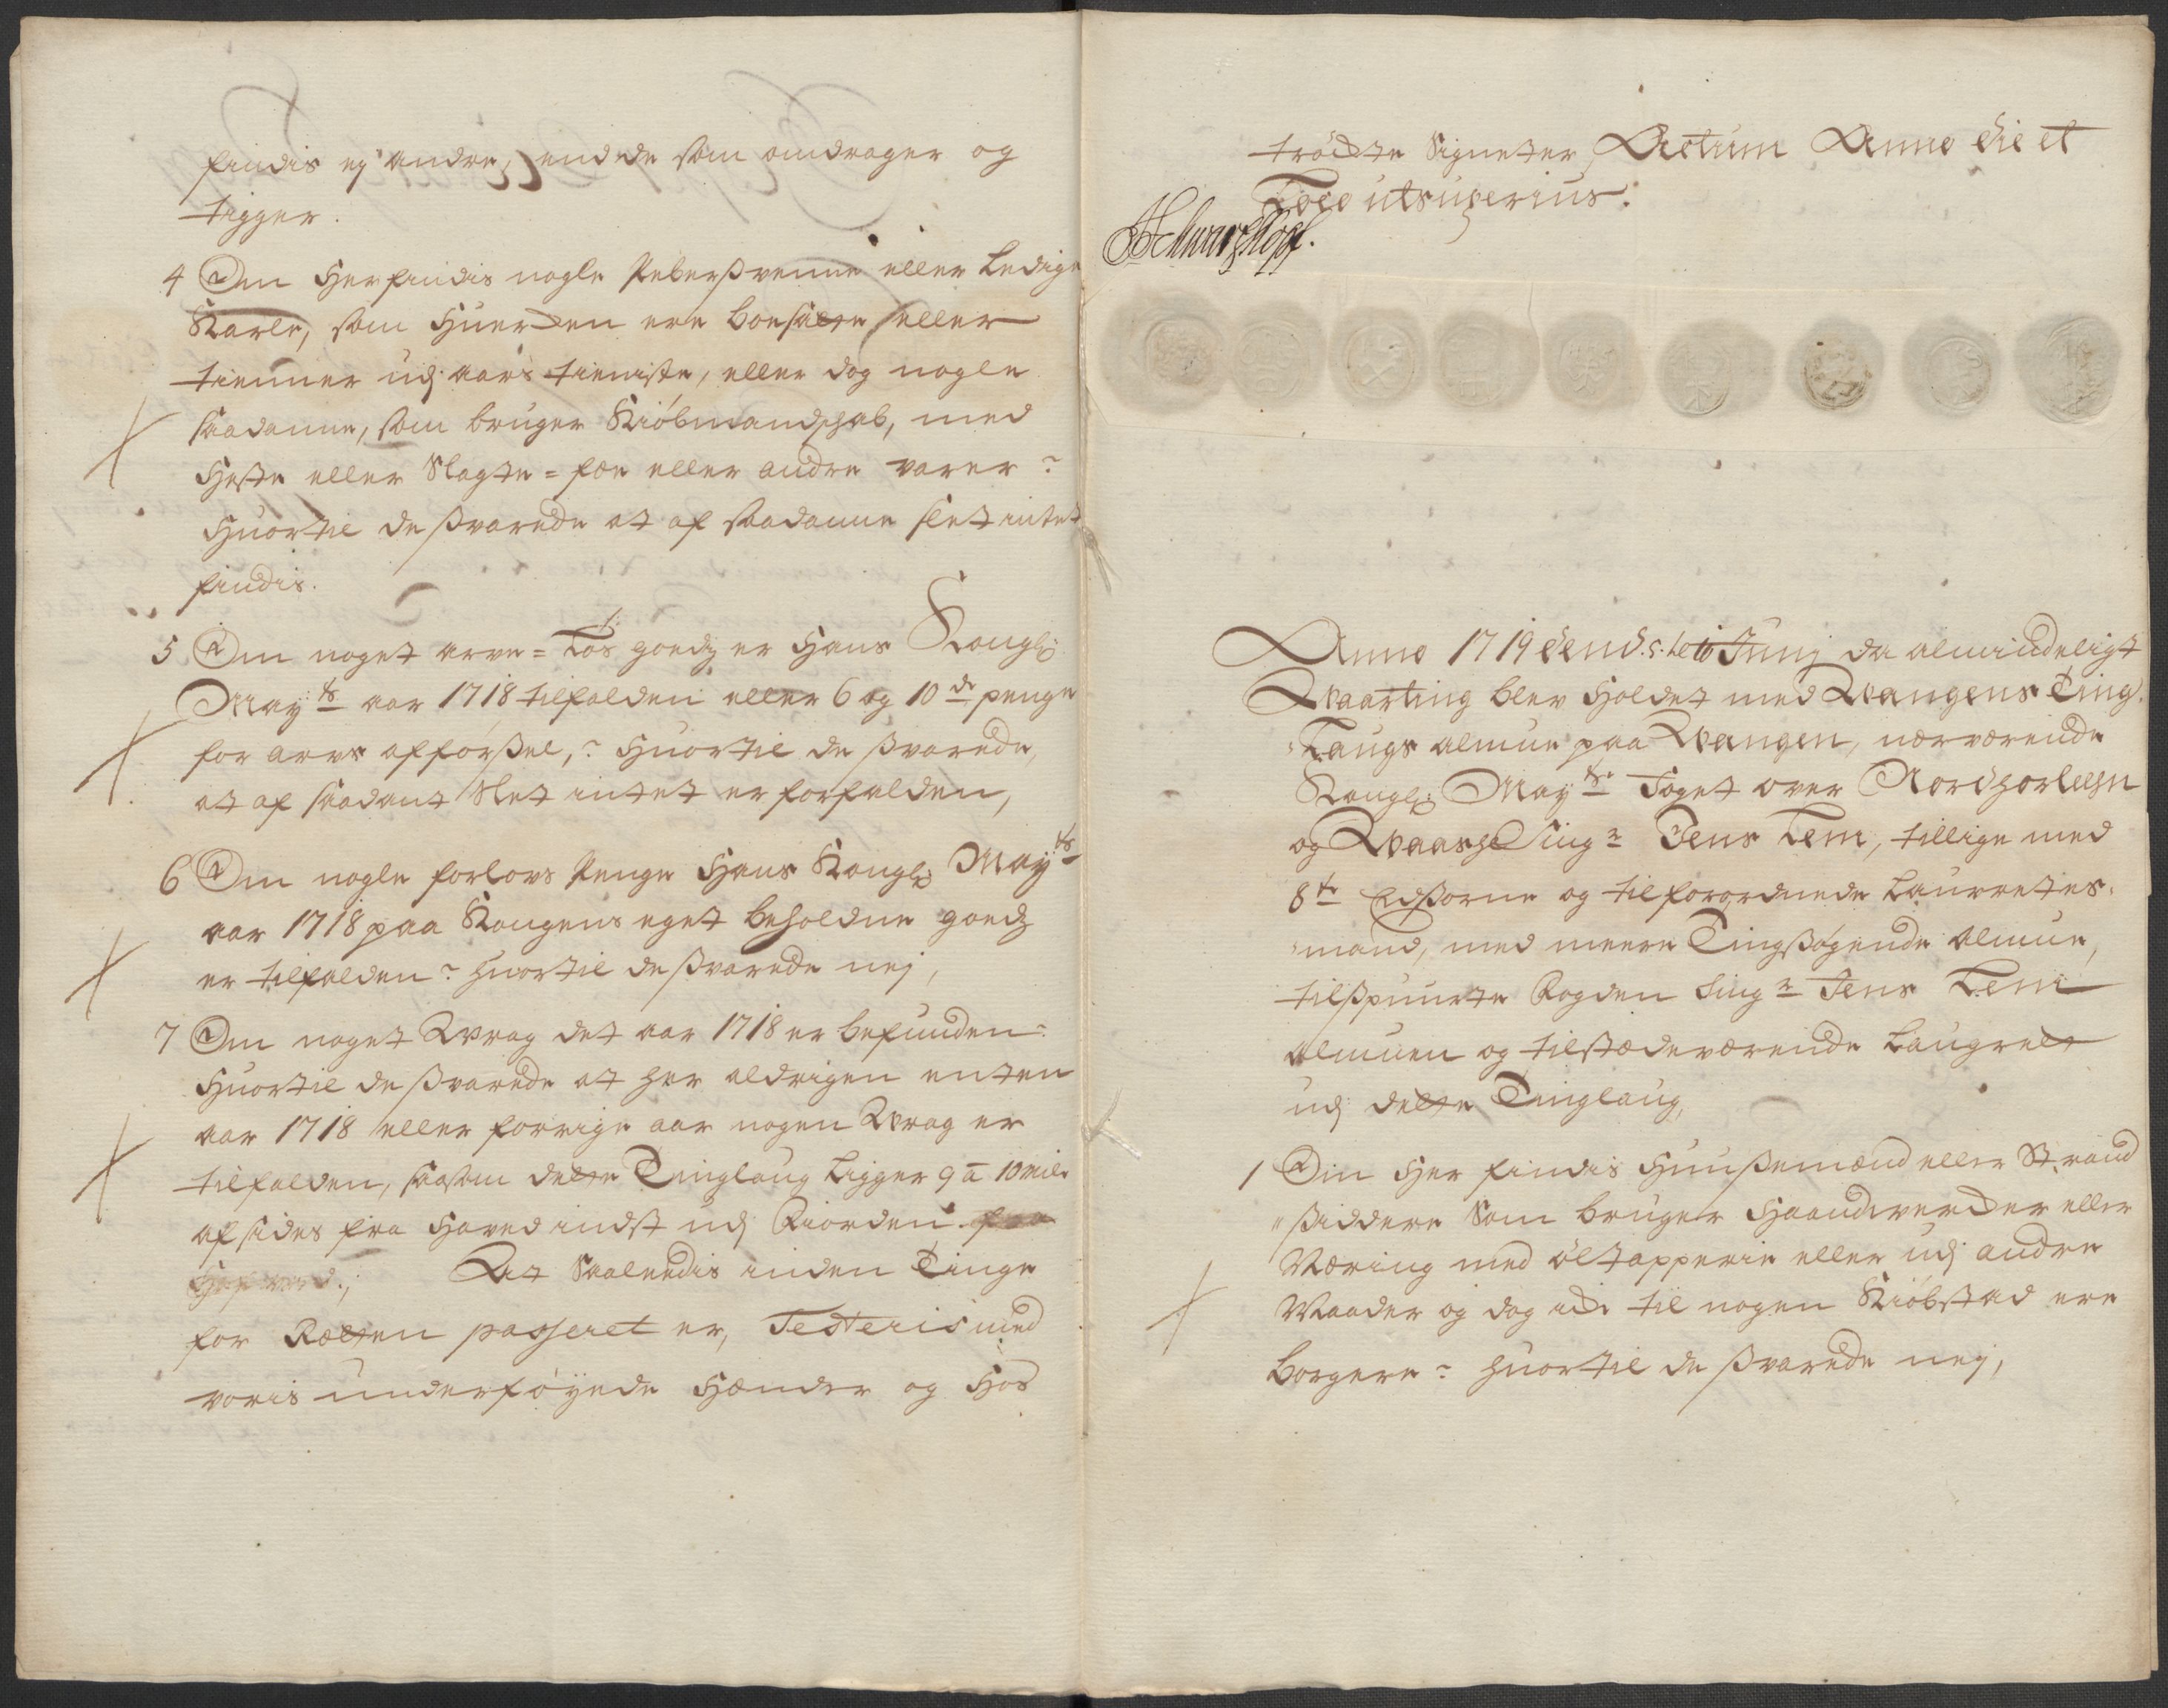 findis ej andre, end de som omdrager og
tigger.
4 Om Her findis nogle Pebersvenne eller Ledige
Karle, som Huercken ere boesatte eller
tienner udj aars tieniste, eller dog nogle
saadanne, som bruger Kiöbmandskab, med
Heste eller Slagte=fæe eller andre varer?
Huortil de svarede at af saadanne slet intet
findis.
5 Om noget arve=Lös goedz er Hans Kongl:
May:ts aar 1718 tilfalden eller 6 og 10de penge
for arvs afförsel,? Huortil de svarede,
at af saadant Slet intet er forfalden,
6 Om nogle forlovs Penge Hans Kongl: May:ts
aar 1718 paa Kongens eget beholdne goedz
er tilfalden? Huortil de svarede nej,
7 Om noget Vrag det aar 1718 er befunden?
Huortil de svarede at her aldrigen enten
aar 1718 eller forrige aar nogen Vrag er
tilfalden, saasom dette Tinglaug Ligger 9 à 10 mile
af sides fra Haved indst udj Fiorden
At Saaledis inden Tinge
for Rætten passeret er, Testeris med
voris underföyede Hænder og Hos
tröckte Signeter, Actum Anno die et
Loco ut superius.
Schwartzkopf.
Anno 1719 dend 5 te Junj da almindeligt
Waarting blev Holdet med Wangens Ting-
Laugs almue paa Wangen, nærværende
Kongl: May:ts Foget over Nordhorlehn
og Waass Sing:r Jens Lem, tillige med
8te Edsorne og tilforordnede Laurretes-
mænd, med meere Tingsögende Almue,
tilspuurte Fogden Sing:r Jens Lem
almuen og tilstædeværende Laugrett
udj dette Tinglaug,
1 Om Her findis Huusemænd eller Strand
siddere Som bruger Haandvercker eller
Næring med öltapperie eller udj andre
Maader og dog icke til nogen Kiöbstad ere
borgere? Huortil de svarede nej,